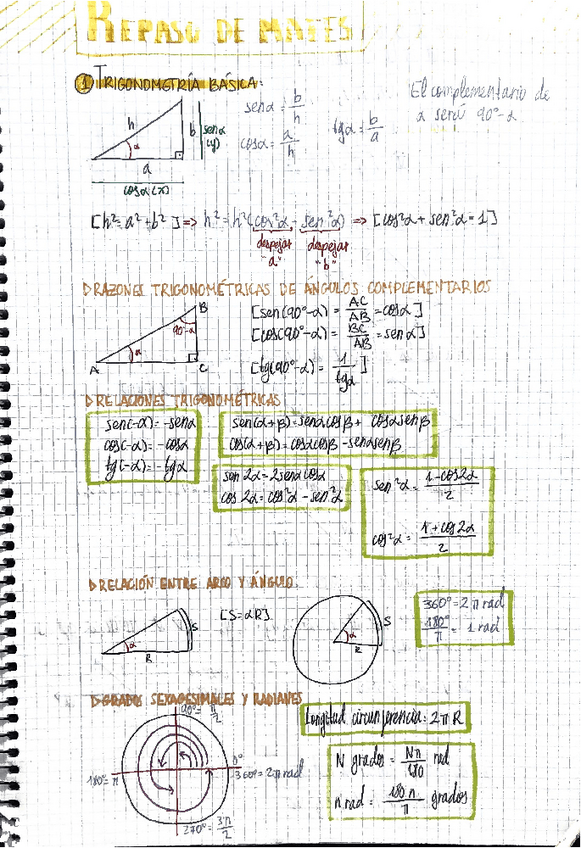 REPASO DE MATES
① TRIGONOMETRÍA BÁSICA:
h
α
b
a
senα (y)
cosα (x)
senα = b/h
cosα = a/h
tgα = b/a
El complementario de
α será 90°-α
[h² = a² + b²] => h² = h²(cos²α, sen²α) => [cos²α + sen²α = 1]
despejar "a"
despejar "b"
▷RAZONES TRIGONOMÉTRICAS DE ÁNGULOS COMPLEMENTARIOS
B
90°-α
α
A
C
[sen(90°-α) = AC/AB = cosα]
[cos(90°-α) = BC/AB = senα]
[tg(90°-α) = 1/tgα]
▷RELACIONES TRIGONOMÉTRICAS
sen(-α) = -senα
cos(-α) = -cosα
tg(-α) = -tgα
sen(α+β) = senαcosβ + cosαsenβ
cos(α+β) = cosαcosβ - senαsenβ
sen 2α = 2senαcosα
cos 2α = cos²α - sen²α
sen²α = 1-cos2α/2
cos²α = 1+cos2α/2
▷RELACIÓN ENTRE ARCO Y ÁNGULO
α
S
R
[S=αR]
α
S
R
360° = 2π rad
180°/π = 1 rad
▷GRADOS SEXAGESIMALES Y RADIANES
90° = π/2
180° = π
0°
360° = 2π rad
270° = 3π/2
Longitud circunferencia: 2πR
N grados = Nπ/180 rad
n rad = 180n/π grados